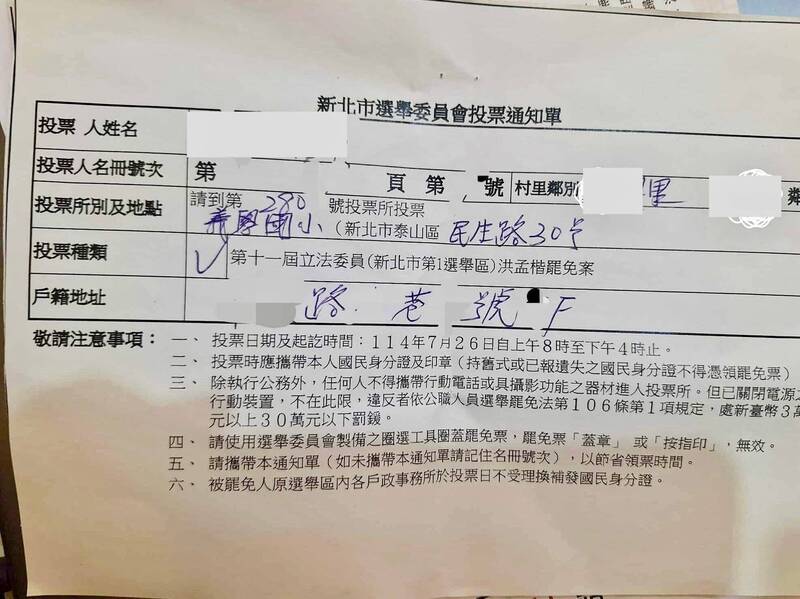 新北市選舉委員會投票通知單
投票人姓名
投票人名冊號次 第 頁第 號 村里鄰別 里 鄰
投票所別及地點 請到第 280 號投票所投票
義學國小 (新北市泰山區 民生路30号
投票種類 ✓ 第十一屆立法委員(新北市第1選舉區)洪孟楷罷免案
戶籍地址 路 巷 號 F
敬請注意事項： 一、 投票日期及起訖時間：114年7月26日自上午8時至下午4時止。
二、 投票時應攜帶本人國民身分證及印章（持舊式或已報遺失之國民身分證不得憑領罷免票）
三、 除執行公務外，任何人不得攜帶行動電話或具攝影功能之器材進入投票所。但已關閉電源之
行動裝置，不在此限，違反者依公職人員選舉罷免法第106條第1項規定，處新臺幣3萬
元以上30萬元以下罰鍰。
四、 請使用選舉委員會製備之圈選工具圈蓋罷免票，罷免票「蓋章」或「按指印」，無效。
五、 請攜帶本通知單（如未攜帶本通知單請記住名冊號次），以節省領票時間。
六、 被罷免人原選舉區內各戶政事務所於投票日不受理換補發國民身分證。